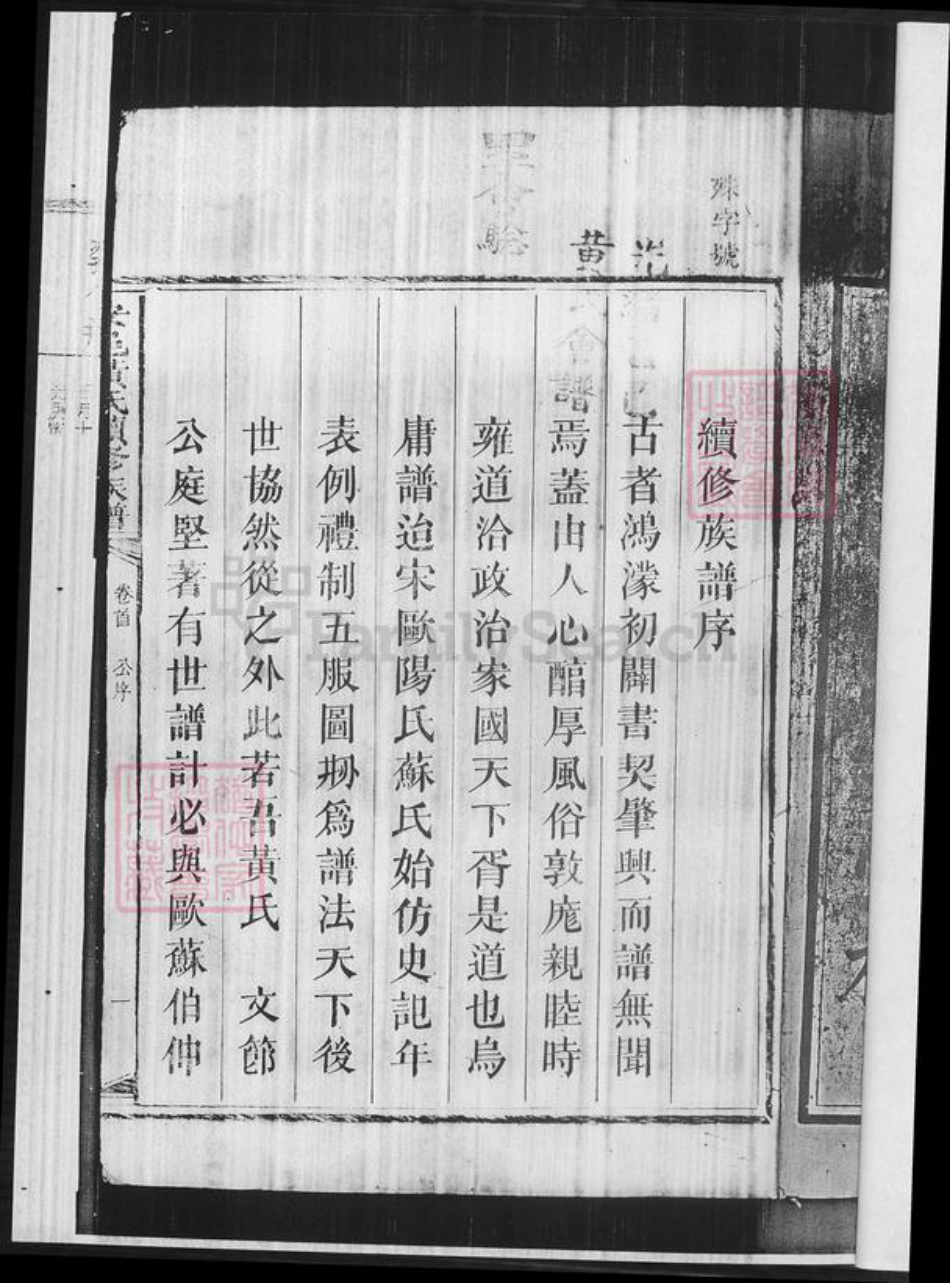 殊字號
續修族譜序
古者鴻濛初闢書契肇興而譜無聞
焉蓋由人心醕厚風俗敦庬親睦時
雍道洽政治家國天下胥是道也烏
庸譜迨宋歐陽氏蘇氏始仿史記年
表例禮制五服圖刱爲譜法天下後
世協然從之外此若吾黃氏 文節
公庭堅著有世譜計必與歐蘇伯仲
黃氏續修族譜
卷首
公序
一
FamilySearch